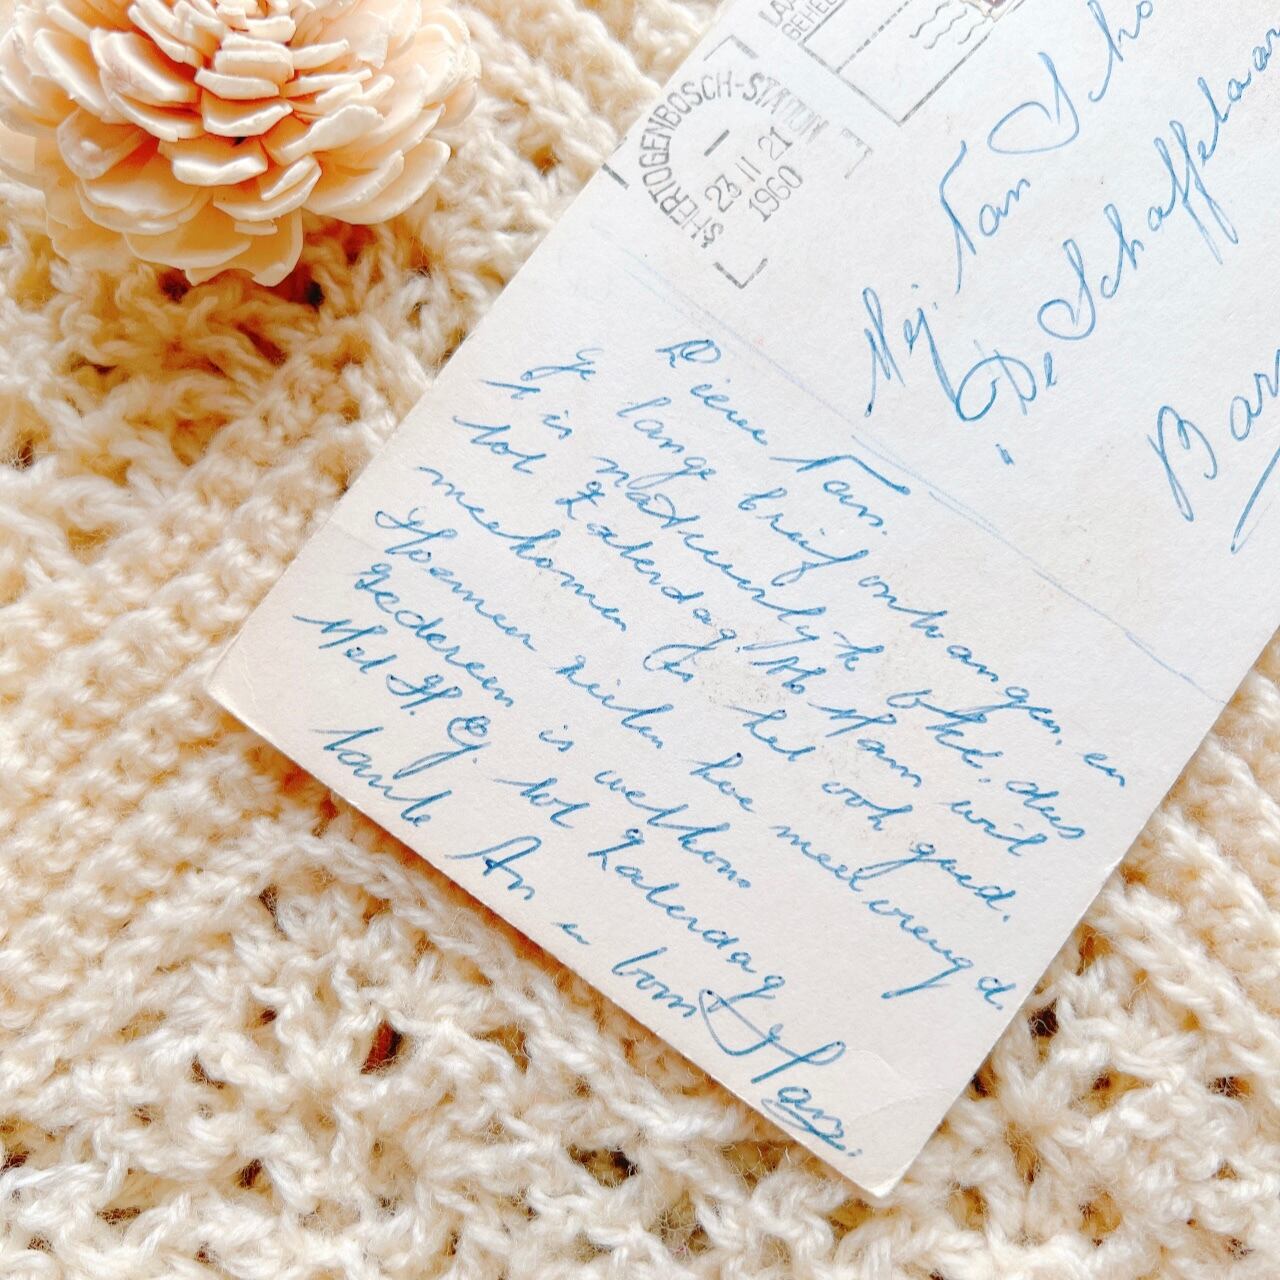 'S HERTOGENBOSCH-STATION
23 II 21
1960
Mej. Van
De Schaffelaar
Bar
Lieve Van.
Je lange brief ontvangen, en
't is natuurlijk oké, dus
tot Zaterdag. Als Mam wil
meekomen is het ook goed.
Hoemeer zielen hoe meer vreugd.
Iedereen is welkom.
Met H. G. tot Zaterdag
tante An en bom Han.